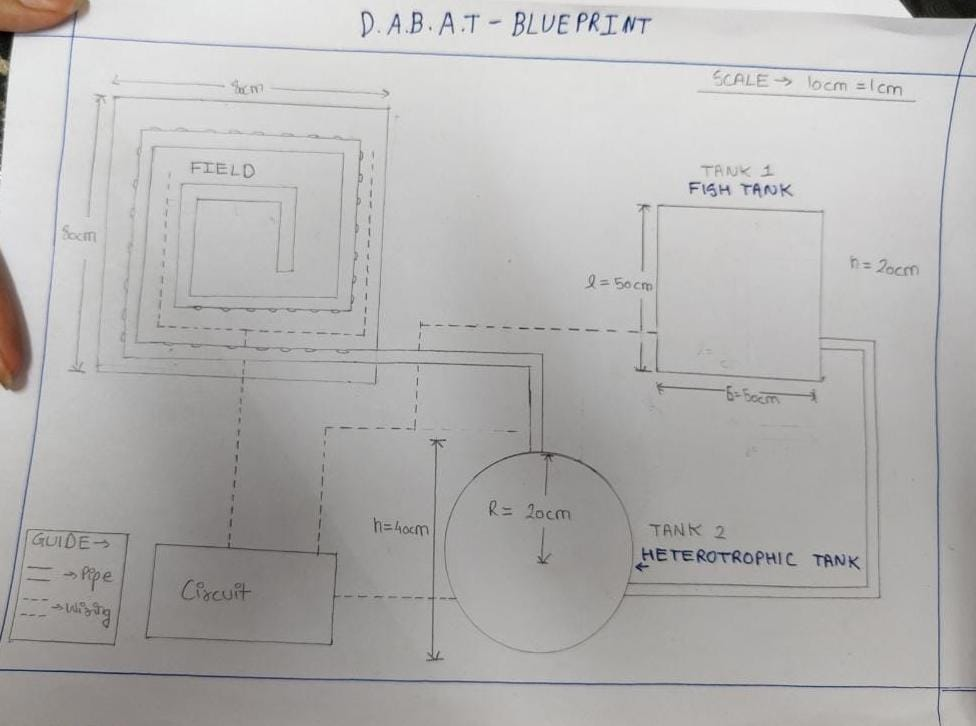 D.A.B.A.T - BLUEPRINT
SCALE → 10cm = 1cm
80cm
80cm
FIELD
TANK 1
FISH TANK
l = 50cm
h = 20cm
b = 50cm
h = 40cm
R = 20cm
TANK 2
HETEROTROPHIC TANK
Circuit
GUIDE →
→ Pipe
→ Wiring